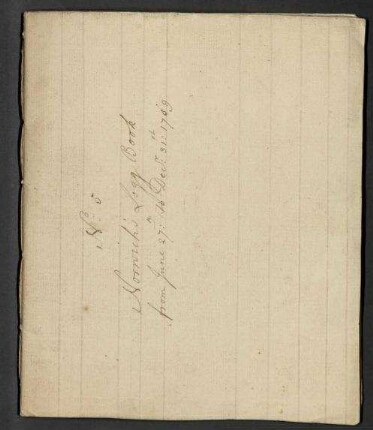 No. 5
Norwich's Logg Book
from June 27th to Decr. 31st 1769